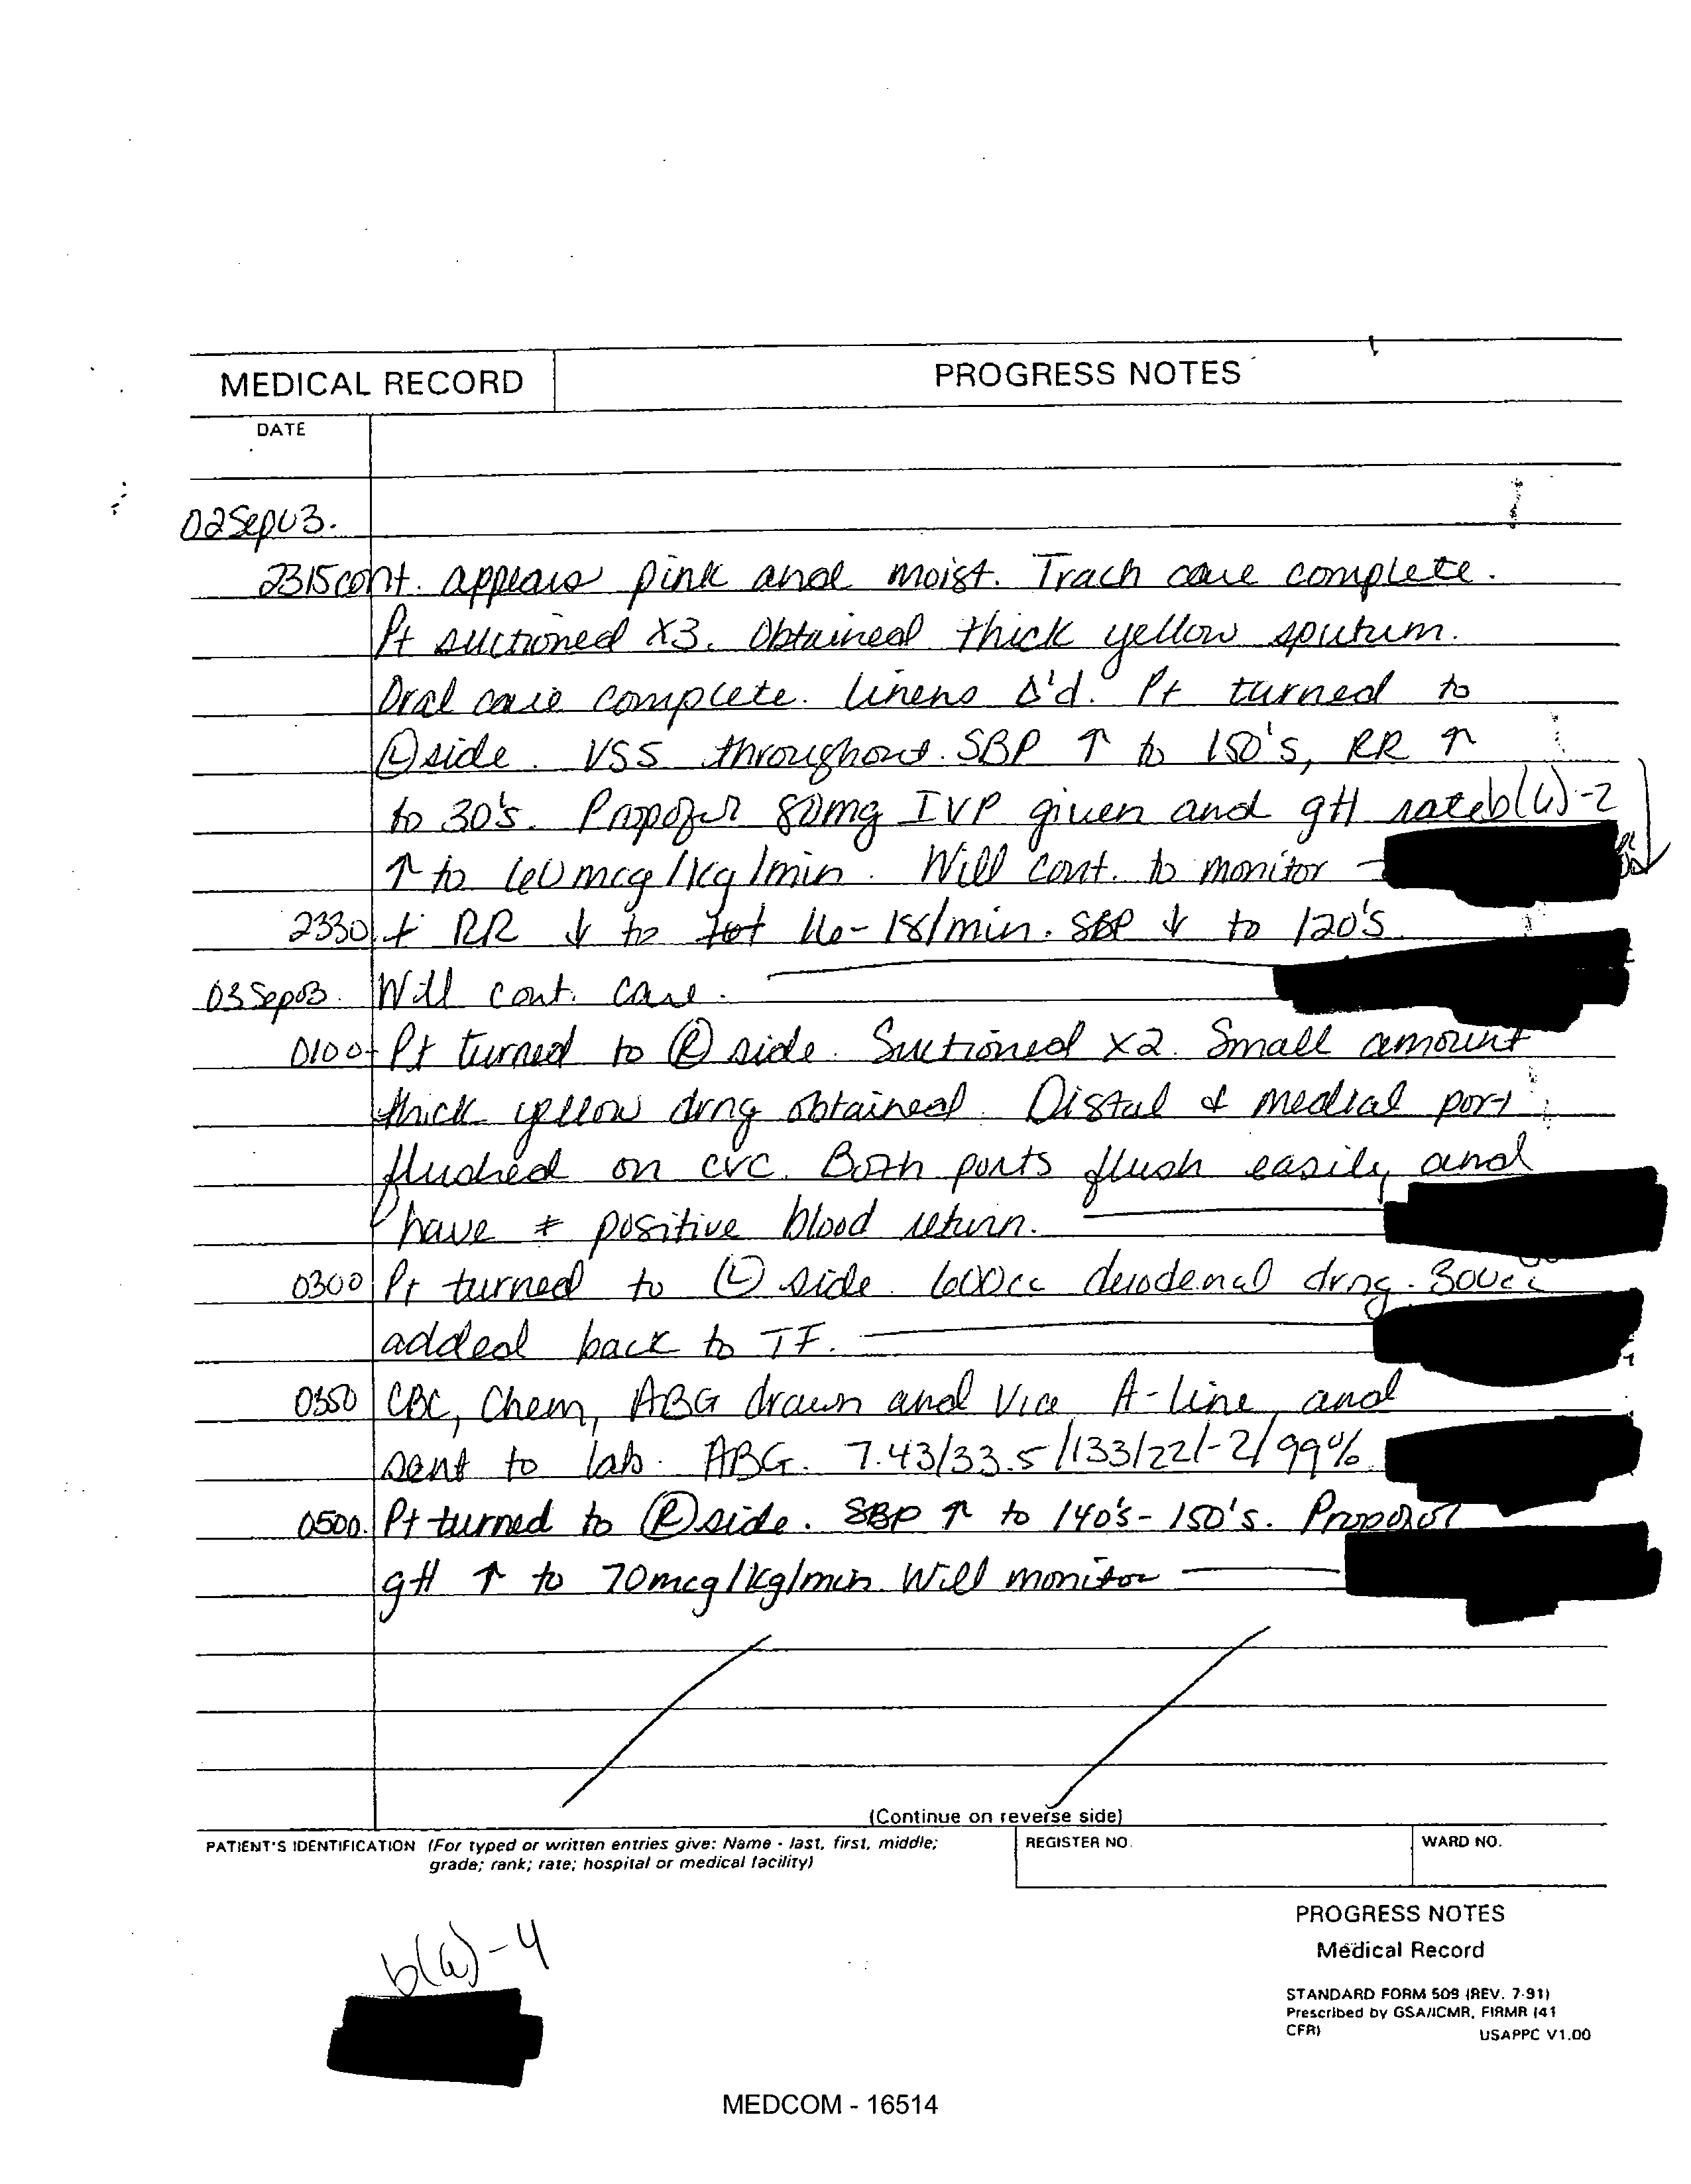 MEDICAL RECORD
PROGRESS NOTES
DATE
02Sep03.
2315 cont. appears pink and moist. Trach care complete.
Pt suctioned x3. Obtained thick yellow sputum.
Oral care complete. linens Δ'd. Pt turned to
Ⓛ side. VSS throughout. SBP ↑ to 150's, RR ↑
to 30's. Propofol 80mg IVP given and gtt rate b(6)-2
↑ to 60mcg/kg/min. Will cont. to monitor
2330 RR ↓ to 16-18/min. SBP ↓ to 120's.
03Sep03. Will cont. care.
0100 Pt turned to Ⓡ side. Suctioned x2. Small amount
thick yellow drng obtained. Distal & medial port
flushed on CVC. Both ports flush easily and
have positive blood return.
0300 Pt turned to Ⓛ side. 600cc duodenal drng. 300cc
added back to TF.
0350 CBC, Chem, ABG drawn and via A-line, and
sent to lab. ABG. 7.43/33.5/133/22/-2/99%
0500. Pt turned to Ⓡ side. SBP ↑ to 140's-150's. Propofol
gtt ↑ to 70mcg/kg/min. Will monitor
(Continue on reverse side)
PATIENT'S IDENTIFICATION (For typed or written entries give: Name - last, first, middle;
grade; rank; rate; hospital or medical facility)
REGISTER NO.
WARD NO.
b(6)-4
PROGRESS NOTES
Medical Record
STANDARD FORM 509 (REV. 7-91)
Prescribed by GSA/ICMR, FIRMR (41
CFR)
USAPPC V1.00
MEDCOM - 16514